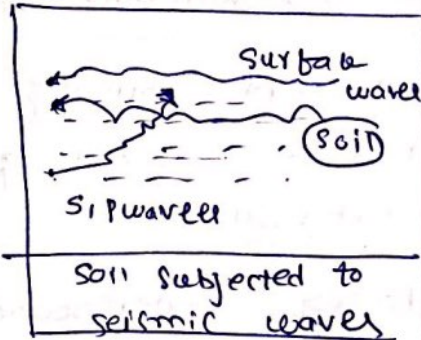 Surface
waves
Soil
S, P waves
Soil subjected to
seismic waves